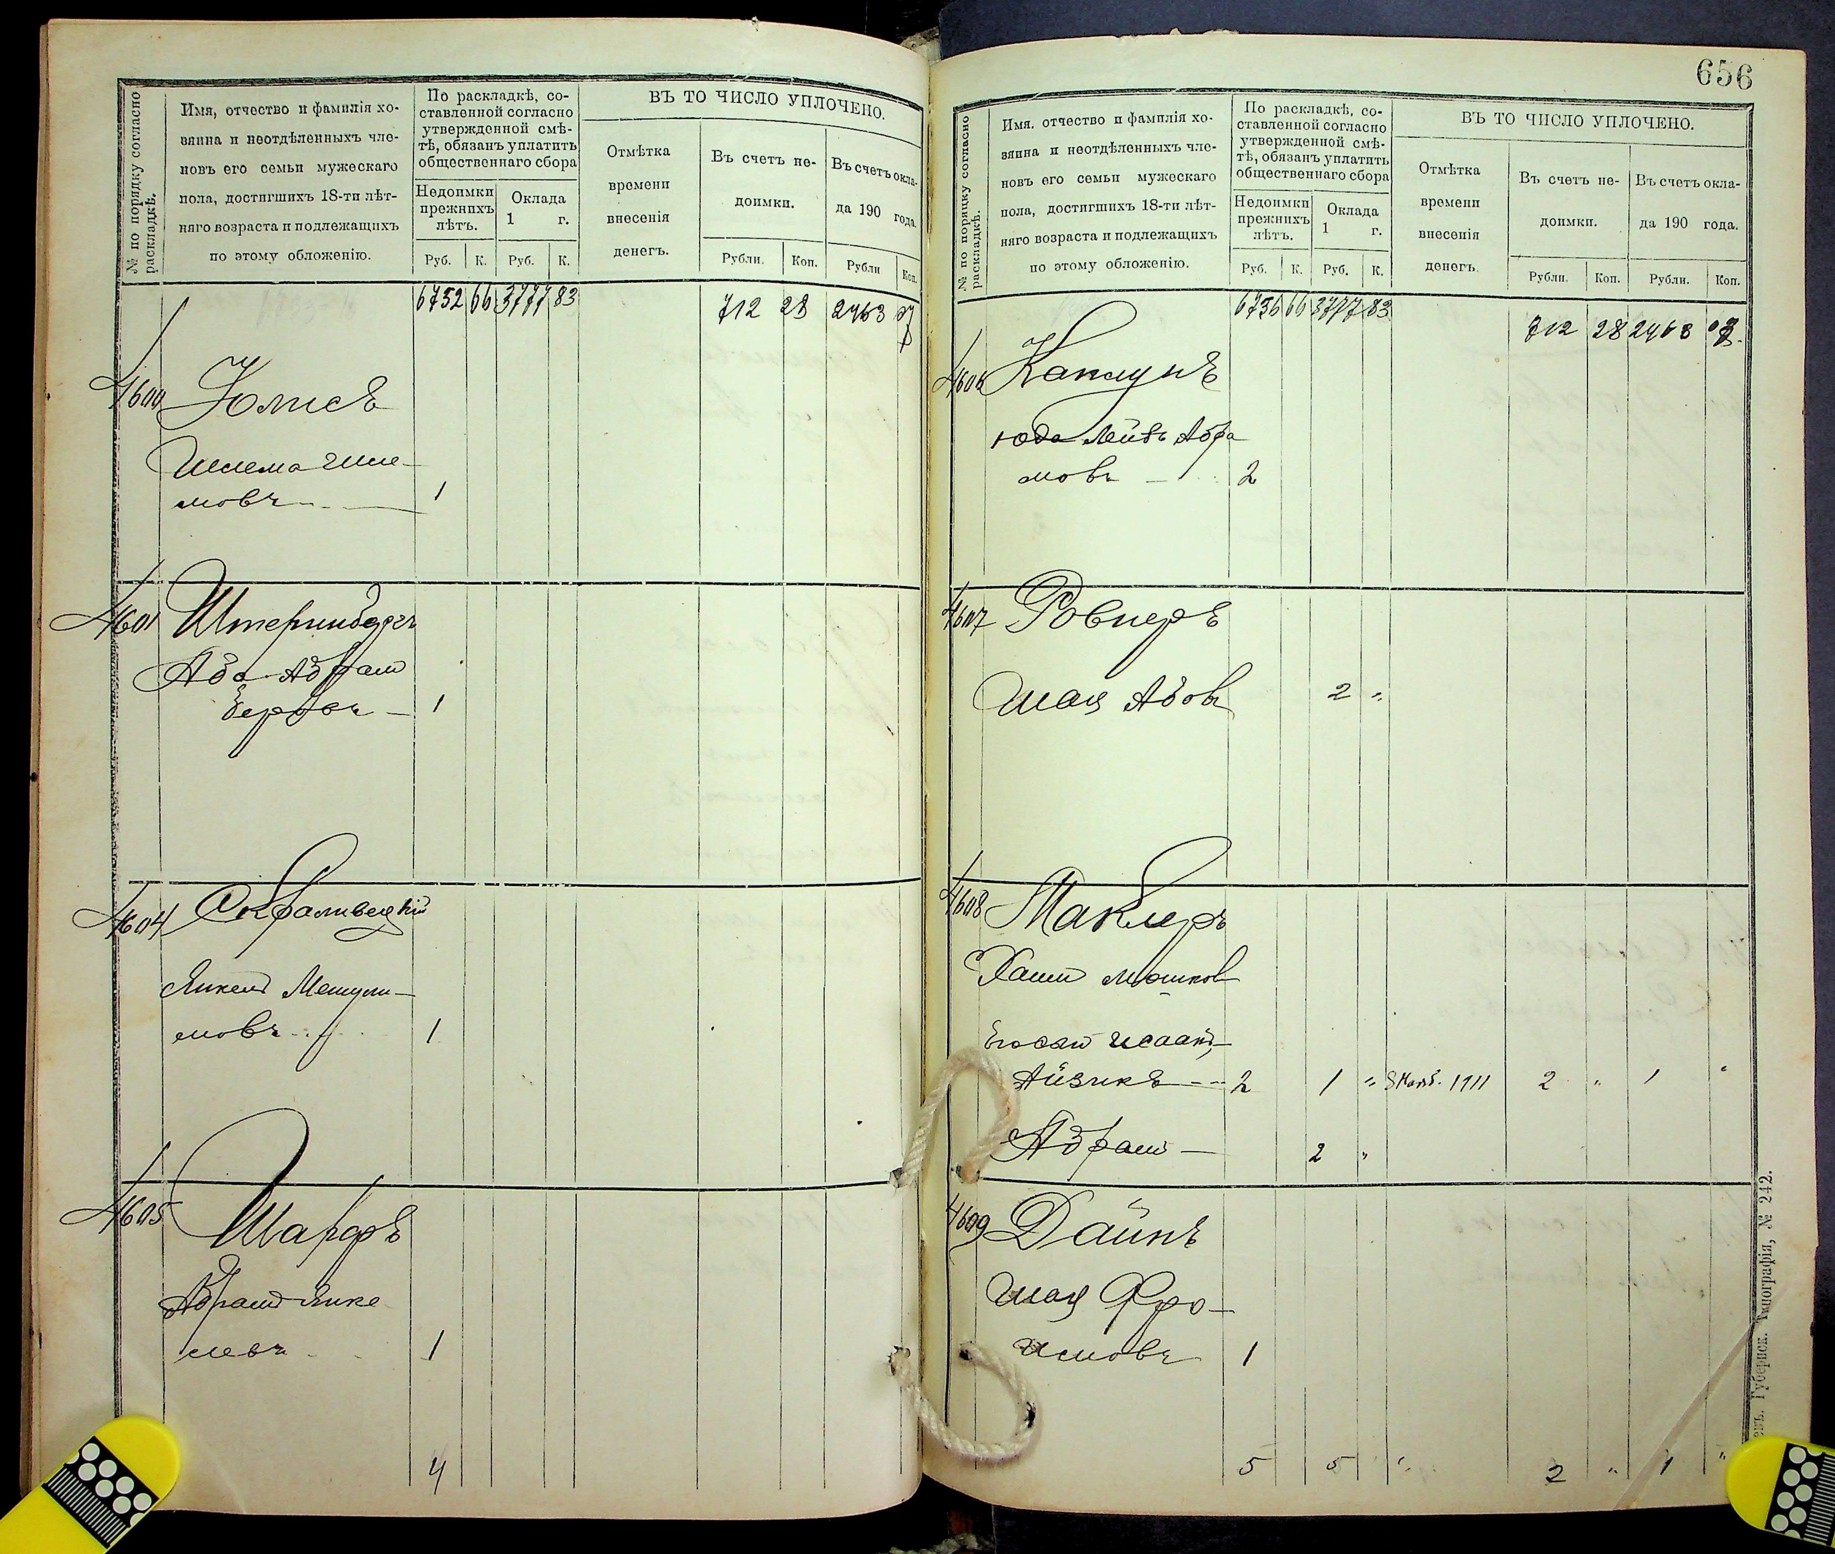 № по порядку согласно раскладкѣ.
Имя, отчество и фамилія хо-
зяина и неотдѣленныхъ чле-
новъ его семьи мужескаго
пола, достигшихъ 18-ти лѣт-
няго возраста и подлежащихъ
по этому обложенію.
По раскладкѣ, со-
ставленной согласно
утвержденной смѣ-
тѣ, обязанъ уплатить
общественнаго сбора
Недоимки прежнихъ лѣтъ.
Оклада 1 г.
Руб. К. Руб. К.
ВЪ ТО ЧИСЛО УПЛОЧЕНО.
Отмѣтка
времени
внесенія
денегъ.
Въ счетъ не-
доимки.
Въ счетъ окла-
да 190 года.
Рубли. Коп. Рубли Коп.
6752 66 3777 83 712 28 2463
4600 Юлисъ
Шлема Шле-
мовъ 1
4601 Штернибергъ
Аба Абрам
Берковъ 1
4604
Янкель Мешули-
мовъ 1
4605 Шарфъ
Абрам Янке
левъ 1
4
656
№ по порядку согласно раскладкѣ.
Имя. отчество и фамилія хо-
зяина и неотдѣленныхъ чле-
новъ его семьи мужескаго
пола, достигшихъ 18-ти лѣт-
няго возраста и подлежащихъ
по этому обложенію.
По раскладкѣ, со-
ставленной согласно
утвержденной смѣ-
тѣ, обязанъ уплатить
общественнаго сбора
Недоимки прежнихъ лѣтъ.
Оклада 1 г.
Руб. К. Руб. К.
ВЪ ТО ЧИСЛО УПЛОЧЕНО.
Отмѣтка
времени
внесенія
денегъ.
Въ счетъ не-
доимки.
Въ счетъ окла-
да 190 года.
Рубли. Коп. Рубли. Коп.
6756 66 3777 83 712 28 2463
4606 Каплунъ
Юда Лейбъ Абра
мовъ 2
4607 Ровнеръ
Шая Абовъ 2 "
4608 Маклеръ
Хаим Мошков
Исаакъ,
Айзикъ 2 1 " 8 Нояб. 1911 2 " 1 "
Абрам 2 "
4609 Даинъ
Шая Фро-
имовъ 1
5 5 " 2 " 1 "
Губернск. Типографія, № 242.